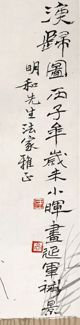 漁歸圖丙子年歲末小暉畫延軍補景
明和先生法家雅正